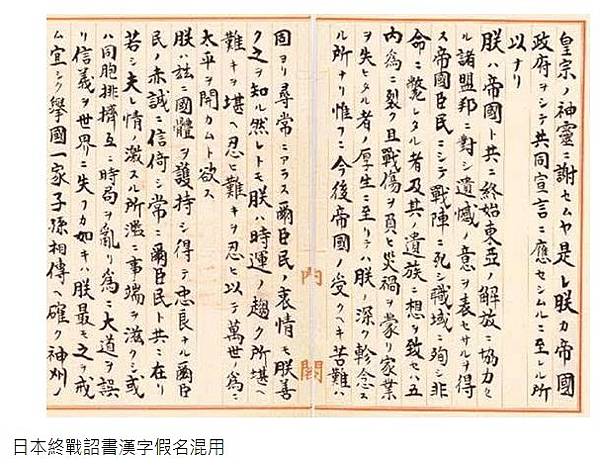 皇宗ノ神靈ニ謝セムヤ是レ朕カ帝國
政府ヲシテ共同宣言ニ應セシムルニ至レル所
以ナリ
朕ハ帝國ト共ニ終始東亞ノ解放ニ協力セ
ル諸盟邦ニ對シ遺憾ノ意ヲ表セサルヲ得
ス帝國臣民ニシテ戰陣ニ死シ職域ニ殉シ非
命ニ斃レタル者及其ノ遺族ニ想ヲ致セハ五
內爲ニ裂ク且戰傷ヲ負ヒ災禍ヲ蒙リ家業
ヲ失ヒタル者ノ厚生ニ至リテハ朕ノ深ク軫念ス
ル所ナリ惟フニ今後帝國ノ受クヘキ苦難ハ
內閣
固ヨリ尋常ニアラス爾臣民ノ衷情モ朕善
ク之ヲ知ル然レトモ朕ハ時運ノ趨ク所堪ヘ
難キヲ堪ヘ忍ヒ難キヲ忍ヒ以テ萬世ノ爲ニ
太平ヲ開カムト欲ス
朕ハ茲ニ國體ヲ護持シ得テ忠良ナル爾臣
民ノ赤誠ニ信倚シ常ニ爾臣民ト共ニ在リ
若シ夫レ情ノ激スル所濫ニ事端ヲ滋クシ或
ハ同胞排擠互ニ時局ヲ亂リ爲ニ大道ヲ誤
リ信義ヲ世界ニ失フカ如キハ朕最モ之ヲ戒
ム宜シク擧國一家子孫相傳ヘ確ク神州ノ
日本終戰詔書漢字假名混用